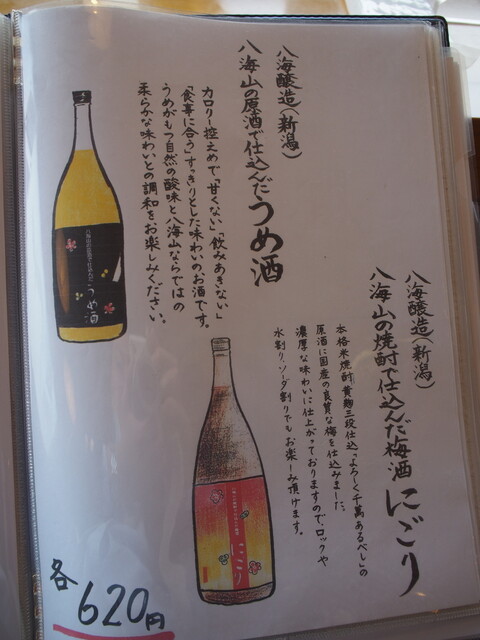 八海醸造(新潟)
八海山の焼酎で仕込んだ梅酒 にごり
本格米焼酎 黄麹三段仕込「よろしく千萬あるべし」の
原酒に国産の良質な梅を仕込みました。
濃厚な味わいに仕上がっておりますので、ロックや
水割り、ソーダ割りでもお楽しみ頂けます。
八海醸造(新潟)
八海山の原酒で仕込んだうめ酒
カロリー控えめで、「甘くない」「飲みあきない」
「食事に合う」すっきりとした味わいのお酒です。
うめがもつ自然の酸味と八海山ならではの
柔らかな味わいとの調和をお楽しみください。
八海山の原酒で仕込んだ
うめ酒
にごり
各620円